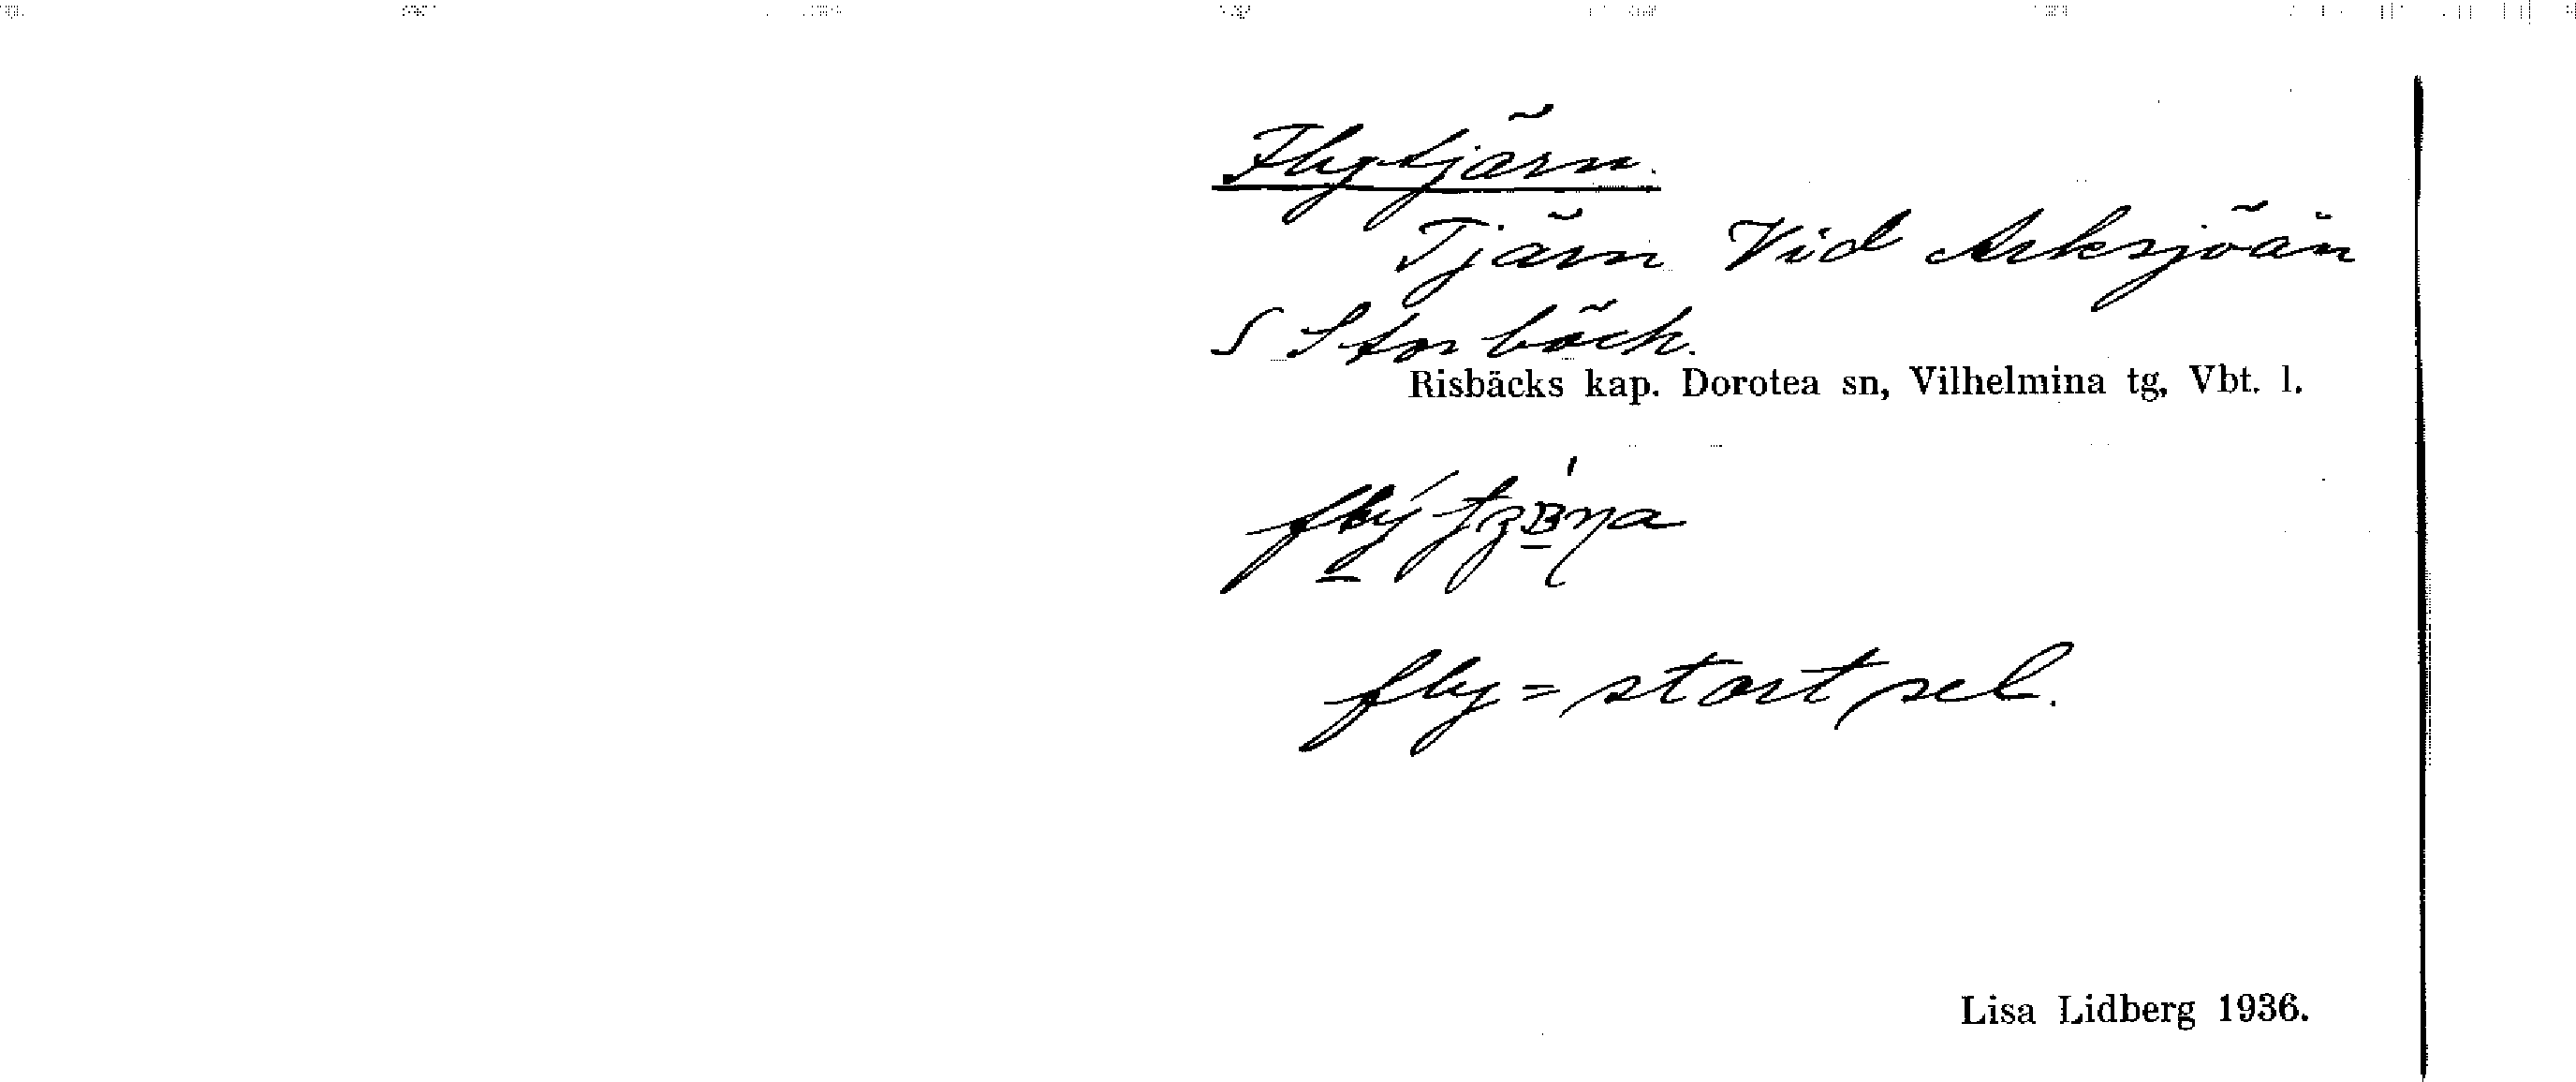 Flytjärn.
Tjärn Vid Arksjöån
S Storbäck.
Risbäcks kap. Dorotea sn, Vilhelmina tg, Vbt. l.
fly = stort sel.
Lisa Lidberg 1936.